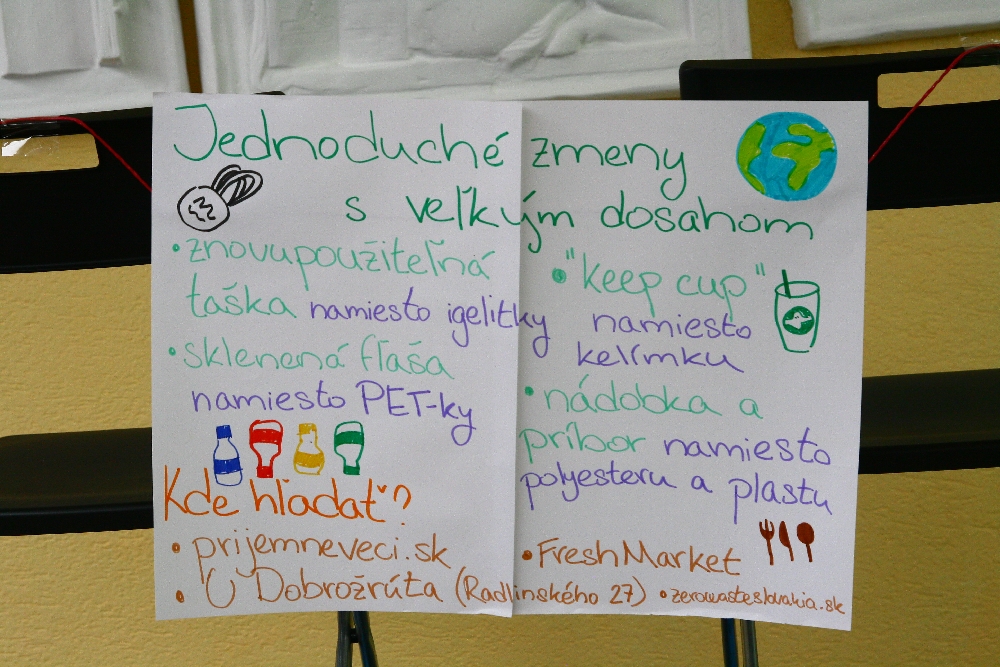 Jednoduché zmeny
s veľkým dosahom
• znovupoužiteľná
taška namiesto igelitky
• sklenená fľaša
namiesto PET-ky
• "keep cup"
namiesto
kelímku
• nádobka a
príbor namiesto
polyesteru a plastu
Kde hľadať?
• prijemneveci.sk
• U Dobrožrúta (Radlinského 27)
• FreshMarket
• zerowasteslovakia.sk